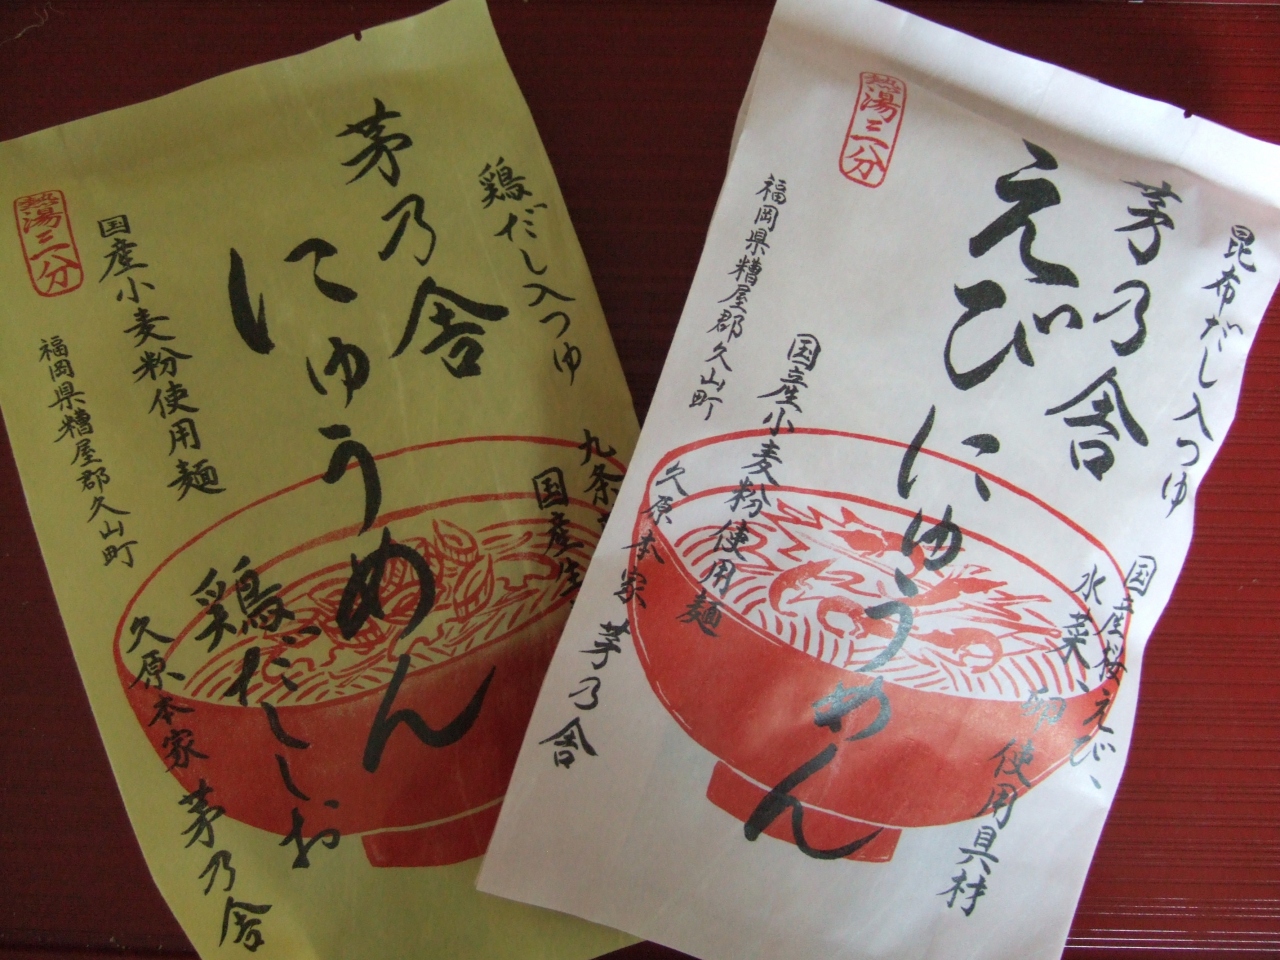 鶏だし入つゆ
茅乃舎
にゅうめん
鶏だししお
九条
国産生
国産小麦粉使用麺
熱湯三分
福岡県糟屋郡久山町
久原本家 茅乃舎
昆布だし入つゆ
茅乃舎
えびにゅうめん
国産桜えび、
水菜、卵使用具材
熱湯三分
国産小麦粉使用麺
福岡県糟屋郡久山町
久原本家 茅乃舎